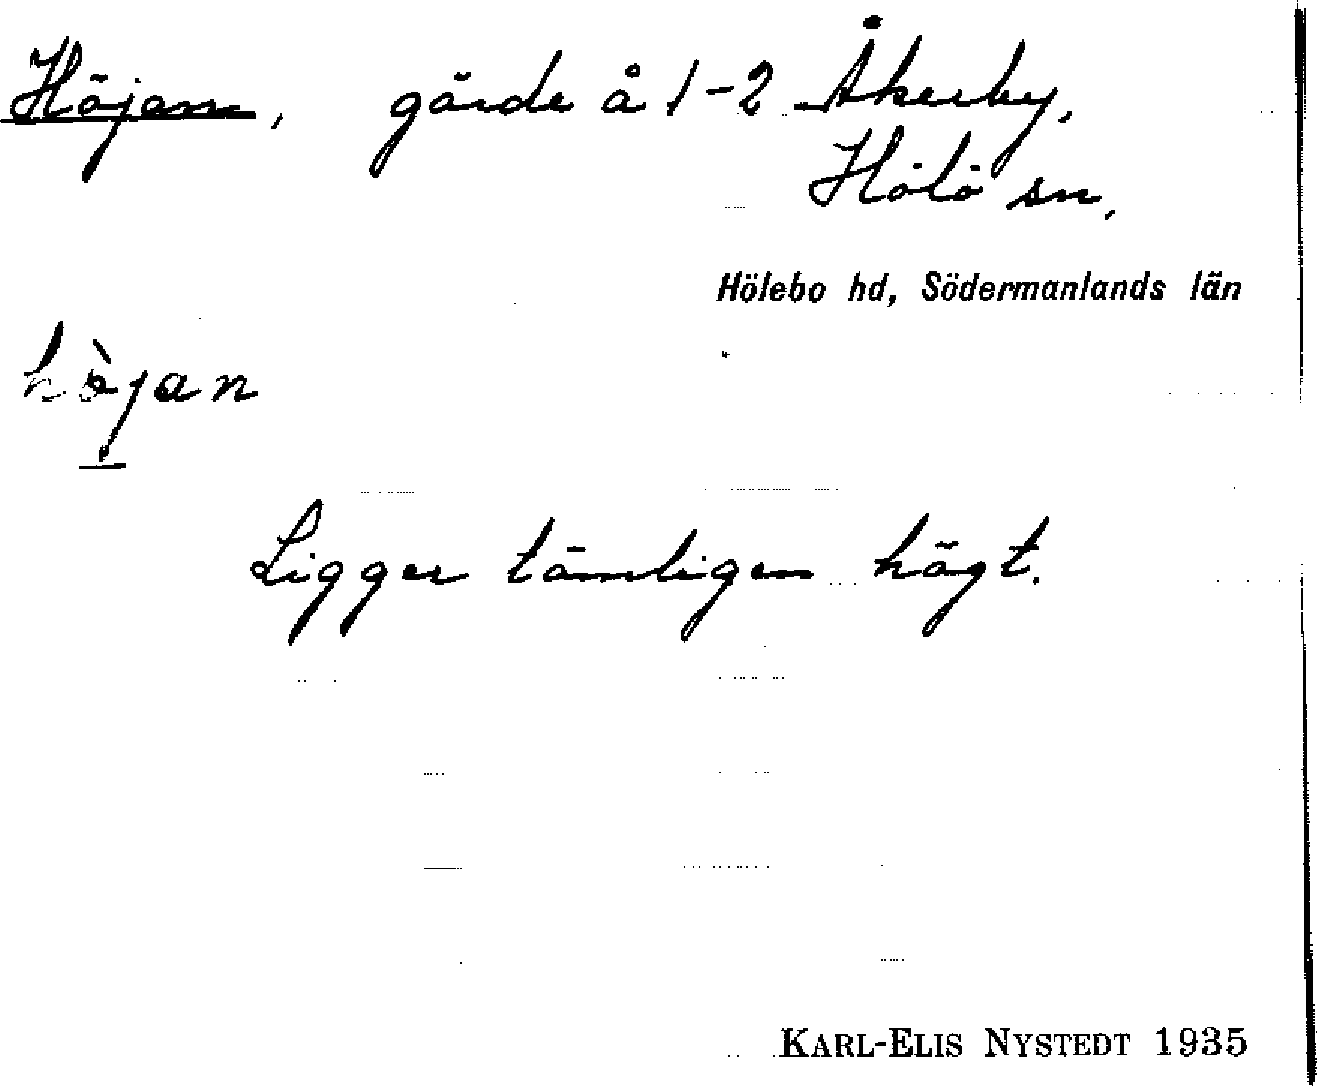 Höjan, gärde å 1-2 Åkerby,
Hölö sn,
Hölebo hd, Södermanlands län
hòjan
Ligger tämligen högt.
KARL-ELIS NYSTEDT 1935